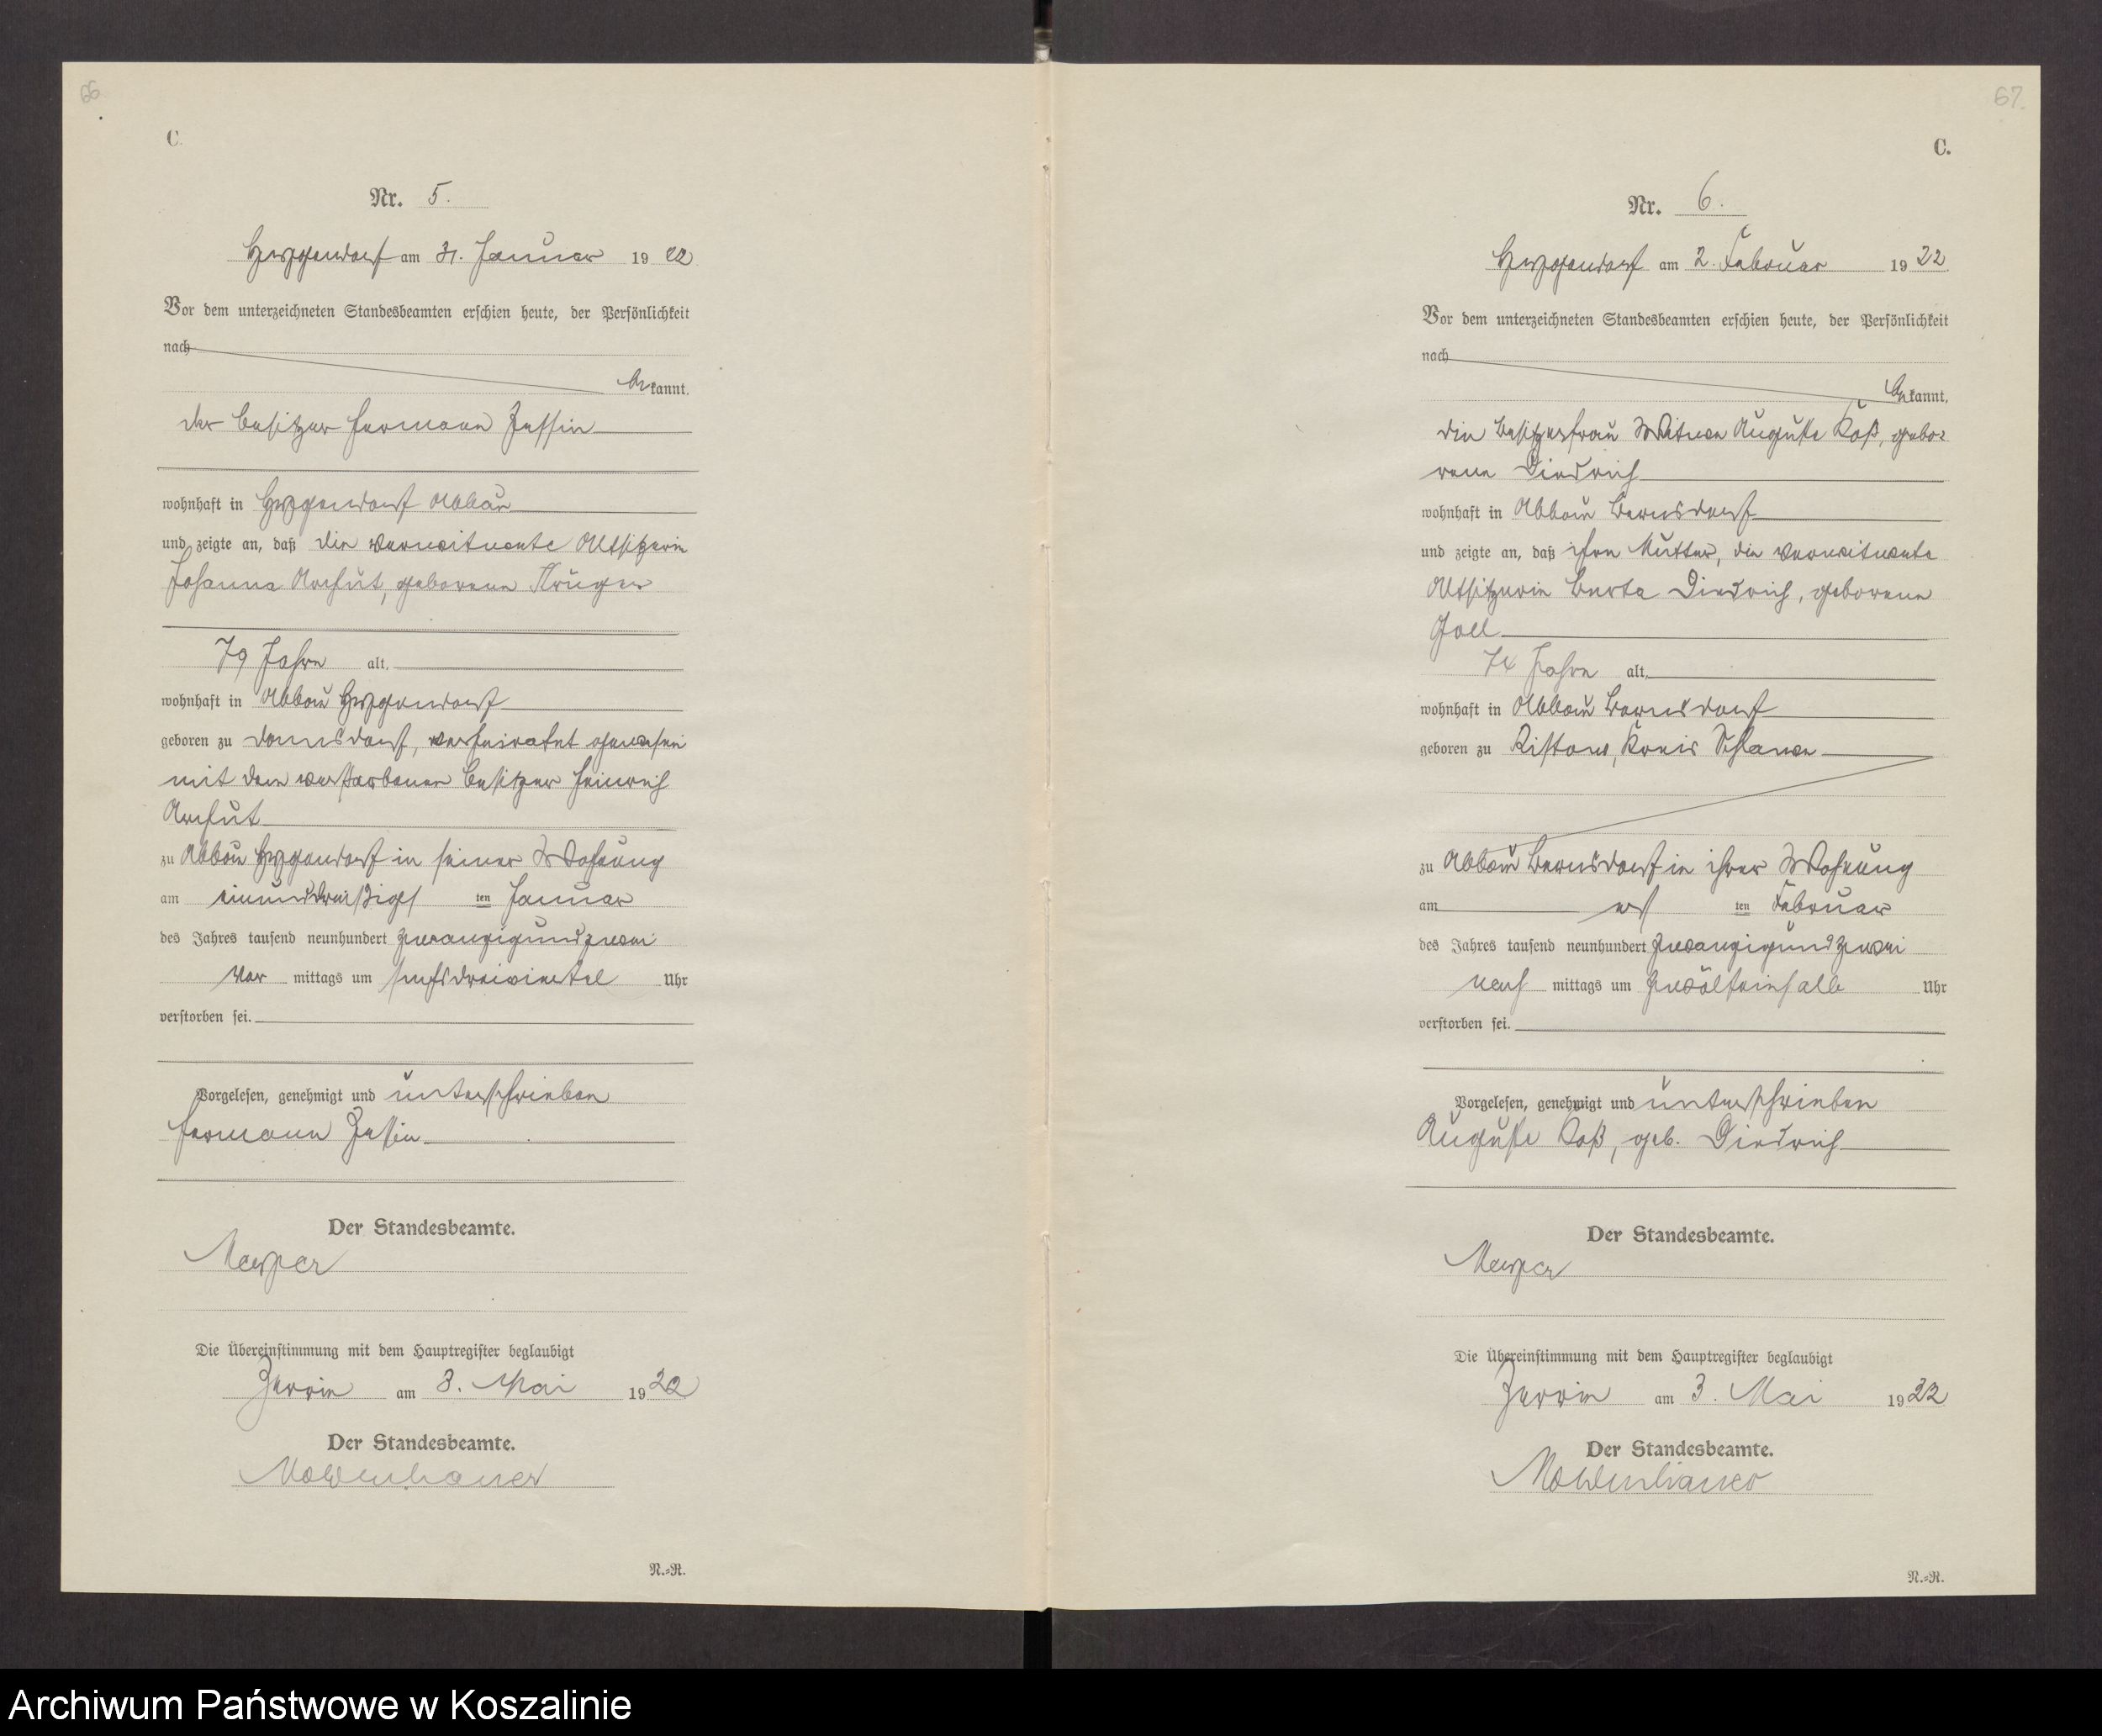 66
C
Nr. 5.
Hygendorf am 31. Januar 1922
Vor dem unterzeichneten Standesbeamten erschien heute, der Persönlichkeit
nach
bekannt,
der Besitzer Hermann
wohnhaft in Hygendorf Abbau
und zeigte an, daß die verwitwete Altsitzerin
Johanna Archut, geborene Krüger
79 Jahre alt,
wohnhaft in Abbau Hygendorf
geboren zu Damsdorf, verheiratet gewesen
mit dem verstorbenen Besitzer Heinrich
Archut
zu Abbau Hygendorf in seiner Wohnung
am einunddreißigs ten Januar
des Jahres tausend neunhundert zwanzigundzwei
Vor mittags um sechsdreiviertel Uhr
verstorben sei.
Vorgelesen, genehmigt und unterschrieben
Hermann
Der Standesbeamte.
Die Übereinstimmung mit dem Hauptregister beglaubigt
Zerrin am 3. Mai 1922
Der Standesbeamte.
Moldenhauer
N.=R.
67.
C.
Nr. 6.
Hygendorf am 2. Februar 1922
Vor dem unterzeichneten Standesbeamten erschien heute, der Persönlichkeit
nach
bekannt,
die Besitzerfrau Witwe Auguste Koß, gebo=
rene Diedrich
wohnhaft in Abbau Bernsdorf
und zeigte an, daß ihre Mutter, die verwitwete
Altsitzerin Berta Diedrich, geborene
Goll
74 Jahre alt,
wohnhaft in Abbau Bernsdorf
geboren zu Ristow, Kreis Schlawe
zu Abbau Bernsdorf in ihrer Wohnung
am ers ten Februar
des Jahres tausend neunhundert zwanzigundzwei
nach mittags um zwölfeinhalb Uhr
verstorben sei.
Vorgelesen, genehmigt und unterschrieben
Auguste Koß, geb. Diedrich
Der Standesbeamte.
Die Übereinstimmung mit dem Hauptregister beglaubigt
Zerrin am 3. Mai 1922
Der Standesbeamte.
Moldenhauer
N.=R.
Archiwum Państwowe w Koszalinie